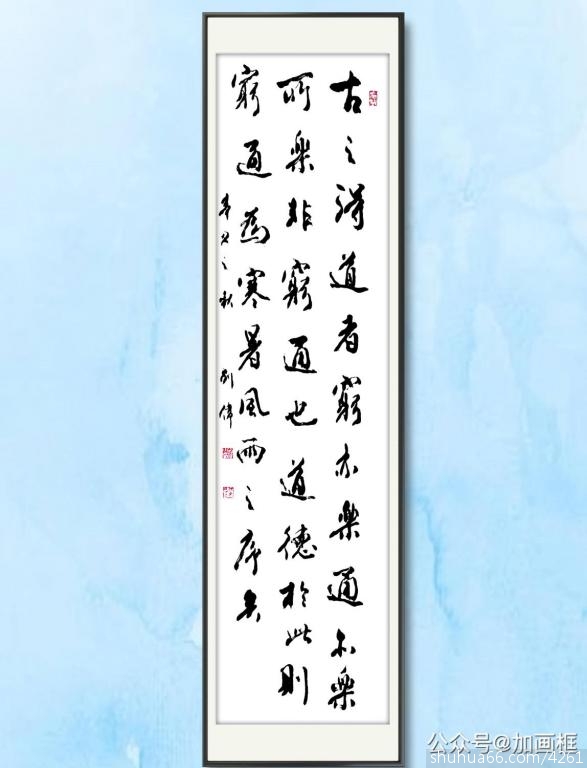 古之得道者窮亦樂通亦樂
所樂非窮通也道德於此則
窮通為寒暑風雨之序矣
辛丑之秋 劉偉
公众号@加画框
shuhua66.com/4261